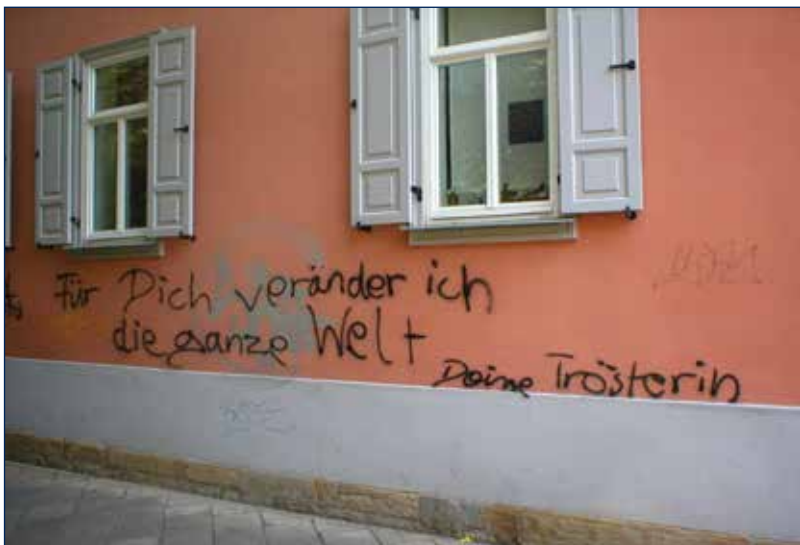 Für Dich veränder ich
die ganze Welt
Deine Trösterin